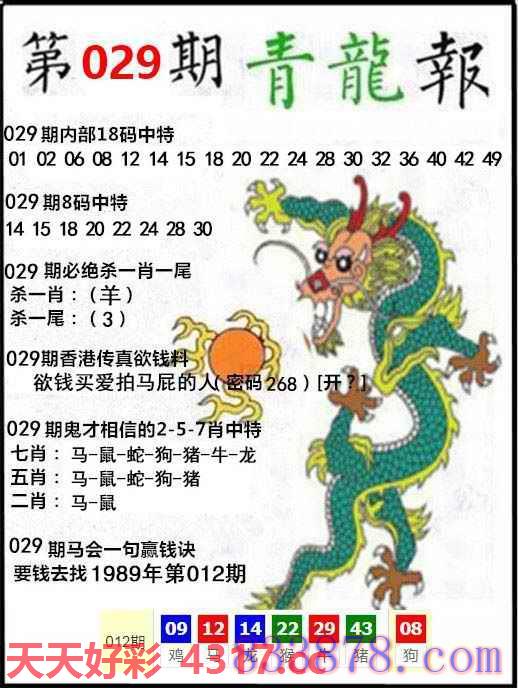 第029期青龍報
029期内部18码中特
01 02 06 08 12 14 15 18 20 22 24 28 30 32 36 40 42 49
029期8码中特
14 15 18 20 22 24 28 30
029期必绝杀一肖一尾
杀一肖：（羊）
杀一尾：（3）
029期香港传真欲钱料
欲钱买爱拍马屁的人(密码268）[开？]
029期鬼才相信的2-5-7肖中特
七肖：马-鼠-蛇-狗-猪-牛-龙
五肖：马-鼠-蛇-狗-猪
二肖：马-鼠
029期马会一句赢钱诀
要钱去找1989年第012期
012期 09 12 14 22 29 43 08
鸡 马 龙 猴 牛 猪 狗
天天好彩 4317.cc